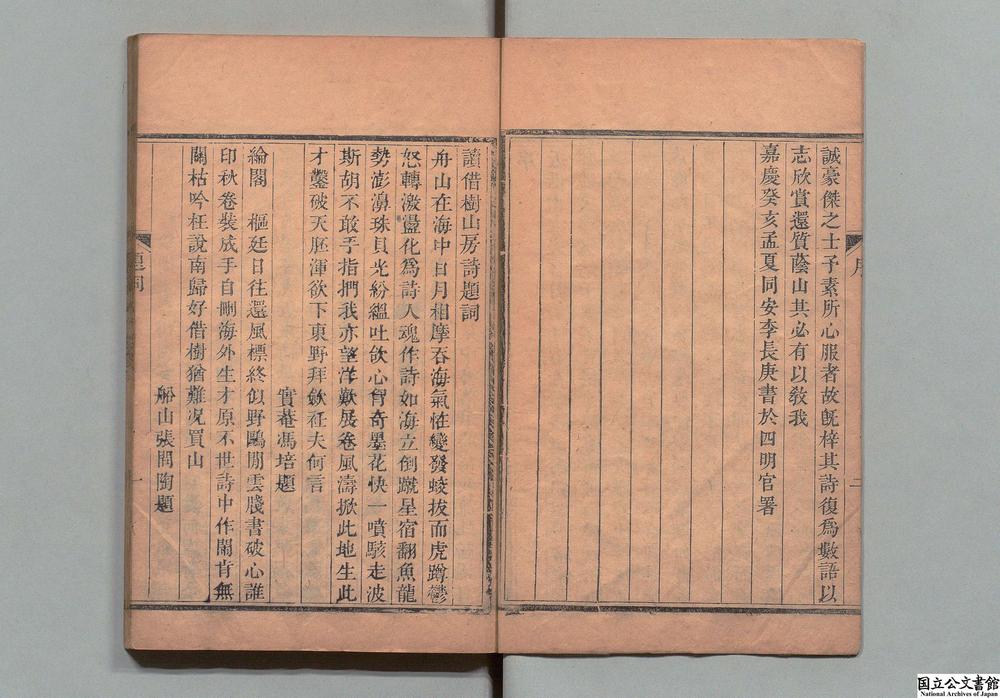 誠豪傑之士予素所心服者故旣梓其詩復爲數語以
志欣賞還質蔭山其必有以敎我
嘉慶癸亥孟夏同安李長庚書於四明官署
序
二
讀借樹山房詩題詞
舟山在海中日月相摩吞海氣恠變發蛟拔而虎蹲鬱
怒轉激盪化爲詩人魂作詩如海立倒蹴星宿翻魚龍
勢澎濞珠貝光紛縕吐欱心胷奇墨花快一噴駭走波
斯胡不敢手指捫我亦望洋歎展卷風濤掀此地生此
才鑿破天胚渾欲下東野拜斂衽夫何言
實菴馮培題
綸閣 樞廷日往還風標終似野鷗閒雲牋書破心誰
印秋卷裝成手自刪海外生才原不世詩中作鬧肯無
關枯吟枉說南歸好借樹猶難况買山
船山張問陶題
題詞
一
国立公文書館
National Archives of Japan